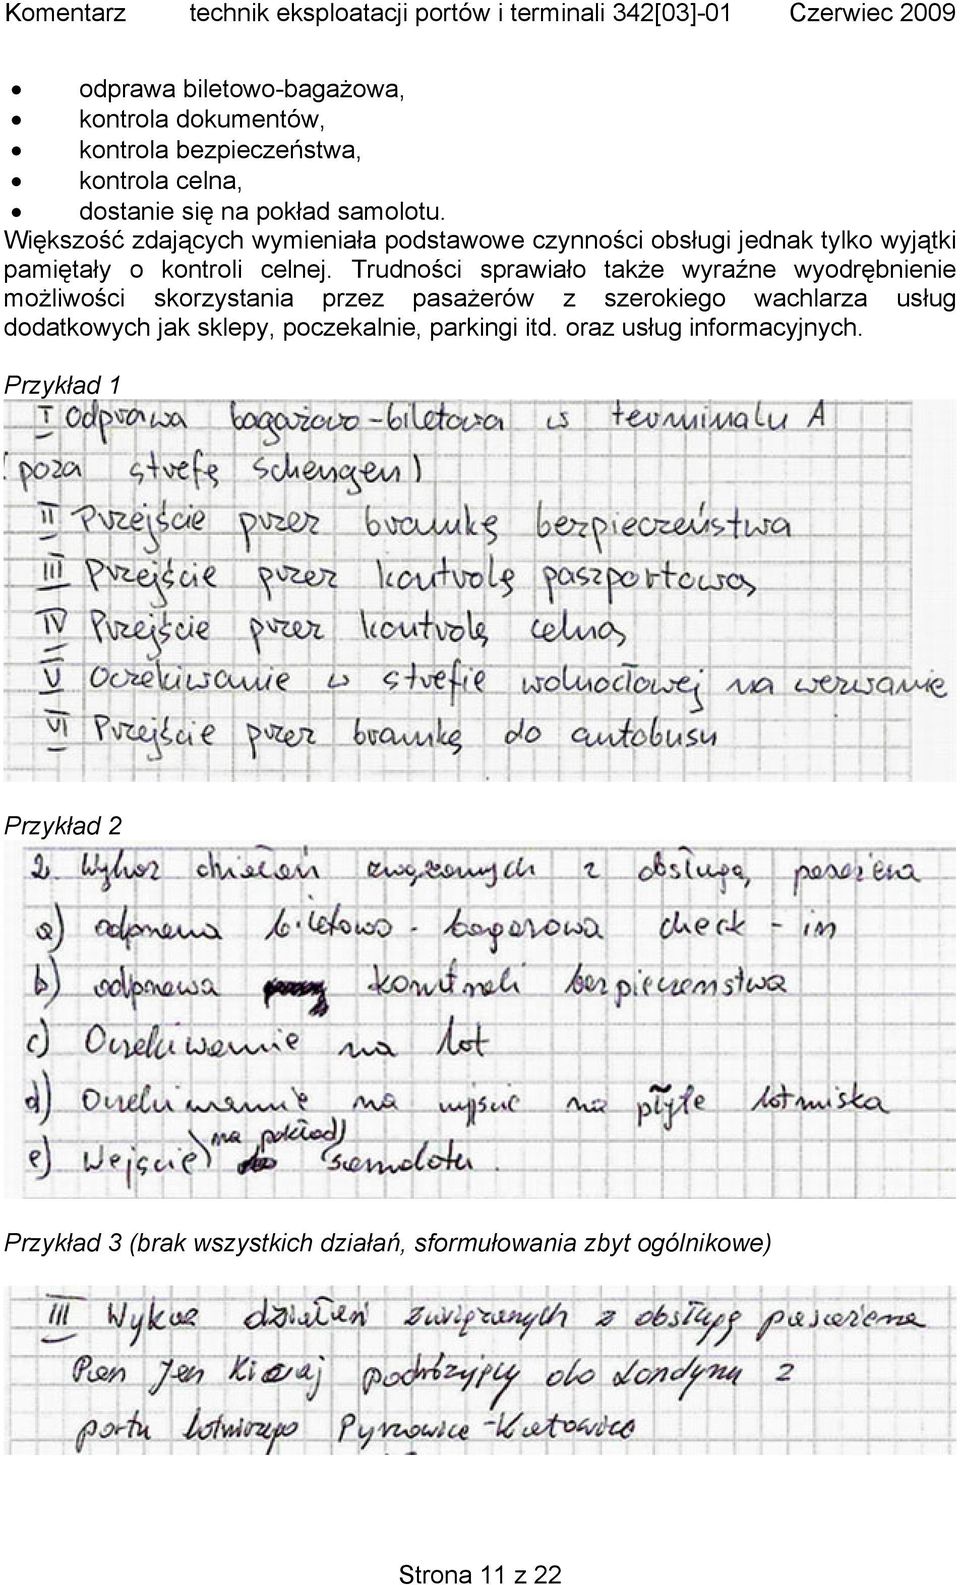 Komentarz technik eksploatacji portów i terminali 342[03]-01 Czerwiec 2009
• odprawa biletowo-bagażowa,
• kontrola dokumentów,
• kontrola bezpieczeństwa,
• kontrola celna,
• dostanie się na pokład samolotu.
Większość zdających wymieniała podstawowe czynności obsługi jednak tylko wyjątki
pamiętały o kontroli celnej. Trudności sprawiało także wyraźne wyodrębnienie
możliwości skorzystania przez pasażerów z szerokiego wachlarza usług
dodatkowych jak sklepy, poczekalnie, parkingi itd. oraz usług informacyjnych.
Przykład 1
I Odprawa bagażowo-biletowa w terminalu A
(poza strefę schengen)
II Przejście przez bramkę bezpieczeństwa
III Przejście przez kontrolę paszportową
IV Przejście przez kontrolę celną
V Oczekiwanie w strefie wolnocłowej na wezwanie
VI Przejście przez bramkę do autobusu
Przykład 2
2. Wykaz działań związanych z obsługą pasażera
a) odprawa biletowo - bagażowa check - in
b) odprawa kontroli bezpieczeństwa
c) Oczekiwanie na lot
d) Oczekiwanie na wyjście na płytę lotniska
e) Wejście na pokład samolotu.
Przykład 3 (brak wszystkich działań, sformułowania zbyt ogólnikowe)
III Wykaz działań związanych z obsługą pasażera
Pan Jan Kiszaj podróżujący do Londynu z
portu lotniczego Pyrzowice-Katowice
Strona 11 z 22